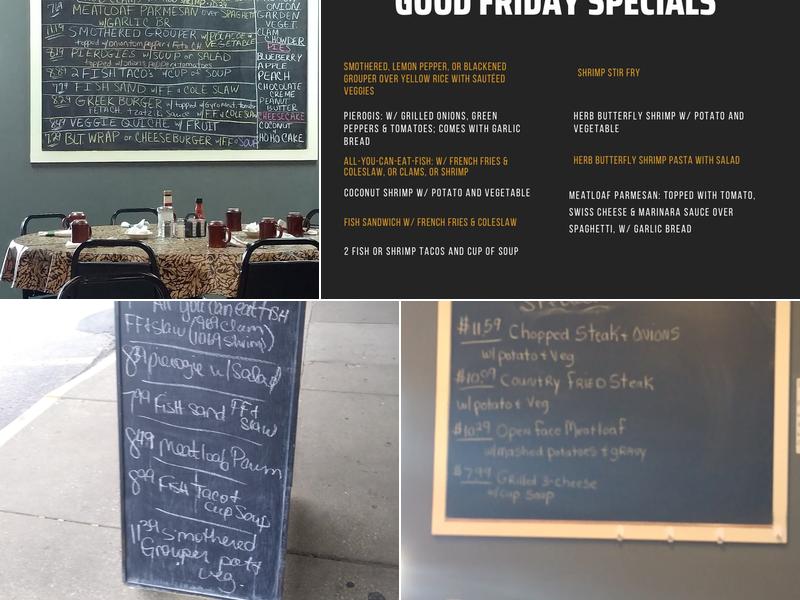 7 49 MEATLOAF PARMESAN over SPAGHETTI
w/GARLIC BR
11 49 SMOTHERED GROUPER w/POTATOE +
topped w/onion tom pepper + Feta CH VEGETABLE
8 49 PIEROGIES w/SOUP or SALAD
topped w/onions peppers + tomatoes
8 89 2 FISH TACO'S w/CUP of SOUP
7 29 FISH SAND w/FF + COLE SLAW
8 29 GREEK BURGER w/topped w/Gyro meat, tomato
FETACH. + tzatziki Sauce w/FF + COLE SLAW
8 49 VEGGIE QUICHE w/ FRUIT
7 29 BLT WRAP or CHEESEBURGER w/FF or SOUP
ONION
GARDEN
VEGET.
CLAM
CHOWDER
PIES
BLUEBERRY
APPLE
PEACH
CHOCOLATE
CREME
PEANUT
BUTTER
CHEESECAKE
COCONUT
HO HO CAKE
GOOD FRIDAY SPECIALS
SMOTHERED, LEMON PEPPER, OR BLACKENED
GROUPER OVER YELLOW RICE WITH SAUTÉED
VEGGIES
PIEROGIS: W/ GRILLED ONIONS, GREEN
PEPPERS & TOMATOES; COMES WITH GARLIC
BREAD
ALL-YOU-CAN-EAT-FISH: W/ FRENCH FRIES &
COLESLAW, OR CLAMS, OR SHRIMP
COCONUT SHRIMP W/ POTATO AND VEGETABLE
FISH SANDWICH W/ FRENCH FRIES & COLESLAW
2 FISH OR SHRIMP TACOS AND CUP OF SOUP
SHRIMP STIR FRY
HERB BUTTERFLY SHRIMP W/ POTATO AND
VEGETABLE
HERB BUTTERFLY SHRIMP PASTA WITH SALAD
MEATLOAF PARMESAN: TOPPED WITH TOMATO,
SWISS CHEESE & MARINARA SAUCE OVER
SPAGHETTI, W/ GARLIC BREAD
All you can eat FISH
FF + slaw (9 89 clam)
(10 89 shrimp)
pierogie w/Salad
7 99 FISH sand FF +
slaw
8 49 meatloaf Parm
8 99 FISH Taco +
Cup Soup
11 39 Smothered
Grouper pot +
veg.
$11.59 Chopped Steak + ONIONS
w/potato + Veg
$10.09 COUNTRY FRIED Steak
w/potato + Veg
$10.29 Open Face Meatloaf
w/mashed potatoes + gRAVY
$7.99 Grilled 3-cheese
w/Cup Soup